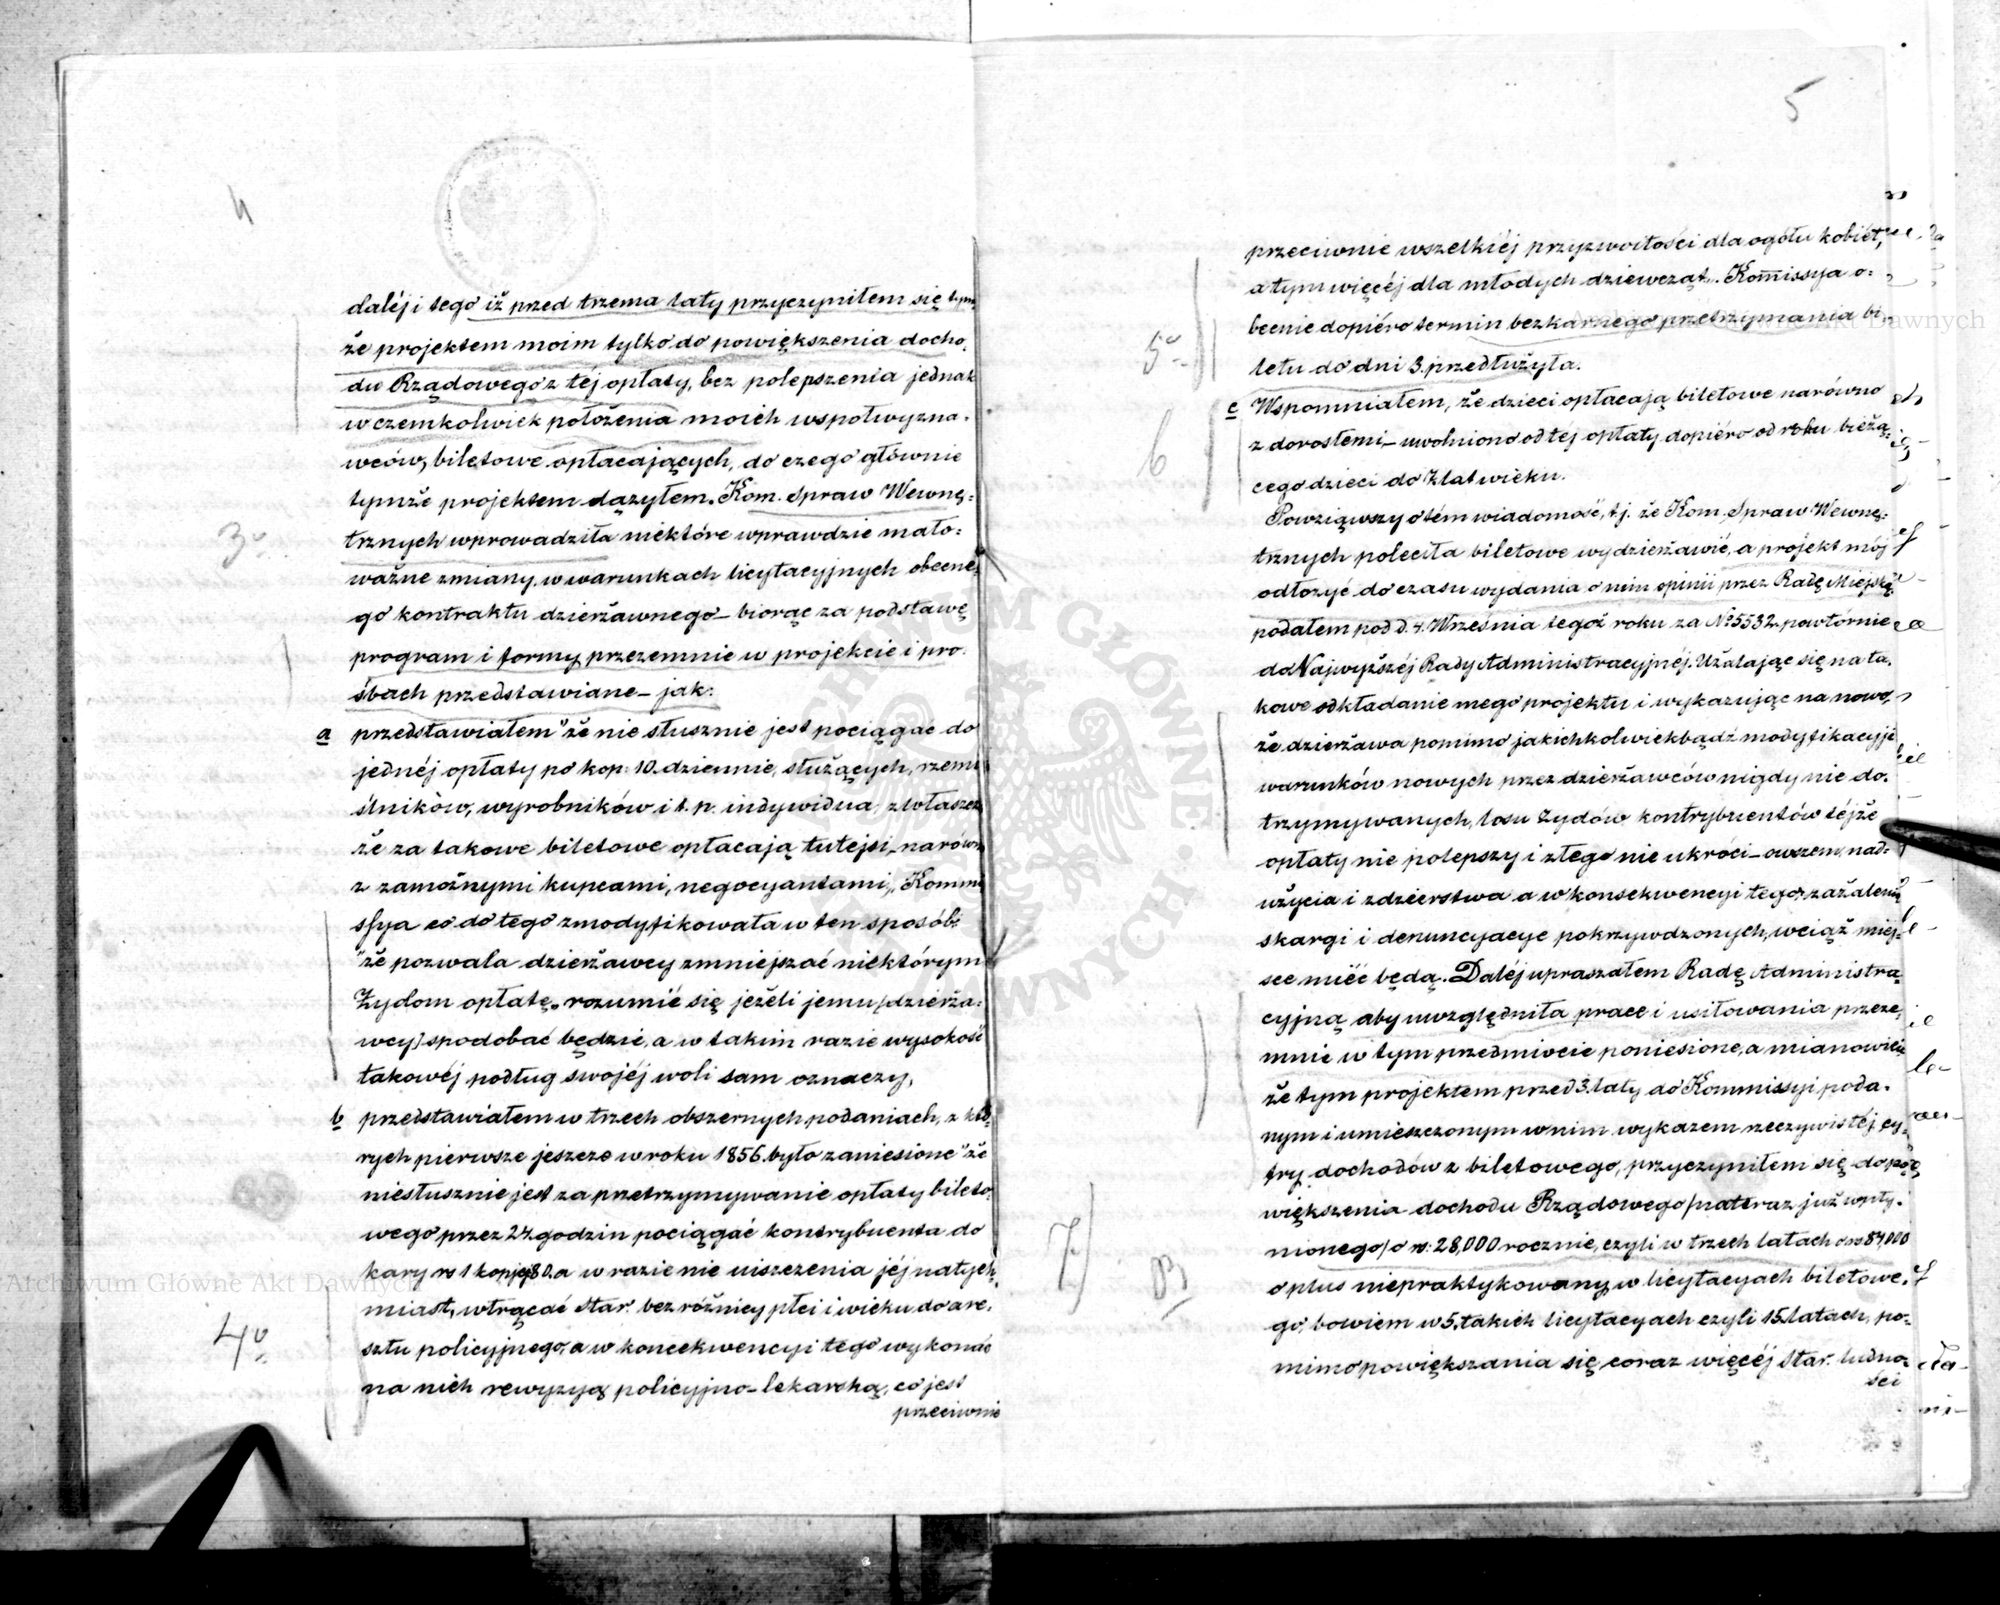 4
daléj i tego iż przed trzema laty przyczyniłem się tym
że projektem moim tylko do powiększenia docho=
du Rządowego z téj opłaty, bez polepszenia jednak
w czemkolwiek położenia moich współwyzna=
wców, biletowe opłacających, do czego głównie
tymże projektem dążyłem. Kom. Spraw Wewnę=
3º
trznych wprowadziła niektóre wprawdzie mało=
ważne zmiany w warunkach licytacyjnych obecne=
go kontraktu dzierżawnego – biorąc za podstawę
program i formy przezemnie w projekcie i pro=
śbach przedstawiane – jak:
a przedstawiałem "że nie słusznie jest pociągać do
jednéj opłaty po kop: 10. dziennie, służących, rzemie
ślników, wyrobników i t. p. indywidua, zwłaszcza
że za takowe biletowe opłacają tutejsi, narówn
z zamożnymi kupcami, negocyantami," Kommi
ssya co do tego zmodyfikowała w ten sposób:
"że pozwala dzierżawcy zmniejszać niektórym
Żydom opłatę, rozumié się jeżeli jemu /dzierża=
wcy/ spodobać będzie, a w takim razie wysokość
takowéj podług swojéj woli sam oznaczy,
b przedstawiałem w trzech obszernych podaniach, z któ=
rych pierwsze jeszcze w roku 1856. było zaniesione "że
niesłusznie jest za przetrzymywanie opłaty bileto=
wego przez 24. godzin pociągać kontrybuenta do
kary rs 1 kopiejek 80. a w razie nie uiszczenia jéj natych=
miast, wtrącać Star. bez różnicy płci i wieku do are=
4º
sztu policyjnego, a w koncekwencyi tego wykonać
na nich rewyzyą policyjno-lekarską, co jest
przeciwnie
5
przeciwnie wszelkiéj przyzwoitości dla ogółu kobiét,
a tym więcéj dla młodych dziewcząt". Kommissya o=
becnie dopiéro termin bezkarnego przetrzymania bi=
5º
letu do dni 3. przedłużyła.
c Wspomniałem, że dzieci opłacają biletowe narówno
z dorosłemi – uwolniono od tej opłaty dopiéro od roku bieżą=
6
cego dzieci do 2 lat wieku.
Powziąwszy o tém wiadomość, t. j. że Kom. Spraw Wewnę=
trznych poleciła biletowe wydzierżawić, a projekt mój
odłożyć do czasu wydania o nim opinii przez Radę Miejską
podałem pod d. 4. Września tegoż roku za Nº 5532. powtórnie
do Najwyższéj Rady Administracyjnéj. Użalając się na ta=
kowe odkładanie mego projektu i wykazując na nowo,
że dzierżawa pomimo jakichkolwiekbądź modyfikacyj
warunków nowych przez dzierżawców nigdy nie do=
trzymywanych, losu Żydów kontrybuentów téjże
opłaty nie polepszy i złego nie ukróci – owszem, nad=
użycia i zdzierstwa a w konsekwencyi tego, zażalenia
skargi i denuncyacye pokrzywdzonych, wciąż miéj=
sce miéć będą. Daléj upraszałem Radę Administra=
cyjną aby uwzględniła prace i usiłowania przeze=
mnie w tym przedmiocie poniesione, a mianowicie
że tym projektem przed 3. laty do Kommissyi poda=
nym i umieszczonym w nim wykazem rzeczywistéj cy=
fry dochodów z biletowego, przyczyniłem się do po=
większenia dochodu Rządowego /nateraz już wpły=
nionego/ o rs: 28,000 rocznie, czyli w trzech latach o rs 84,000
7
o plus niepraktykowany w licytacyach biletowe=
go, bowiem w 5. takich licytacyach czyli 15. latach, po=
mimo powiększania się coraz więcéj Star. ludno
ści
Archiwum Główne Akt Dawnych
Archiwum Główne Akt Dawnych
ARCHIWUM GŁÓWNE AKT DAWNYCH